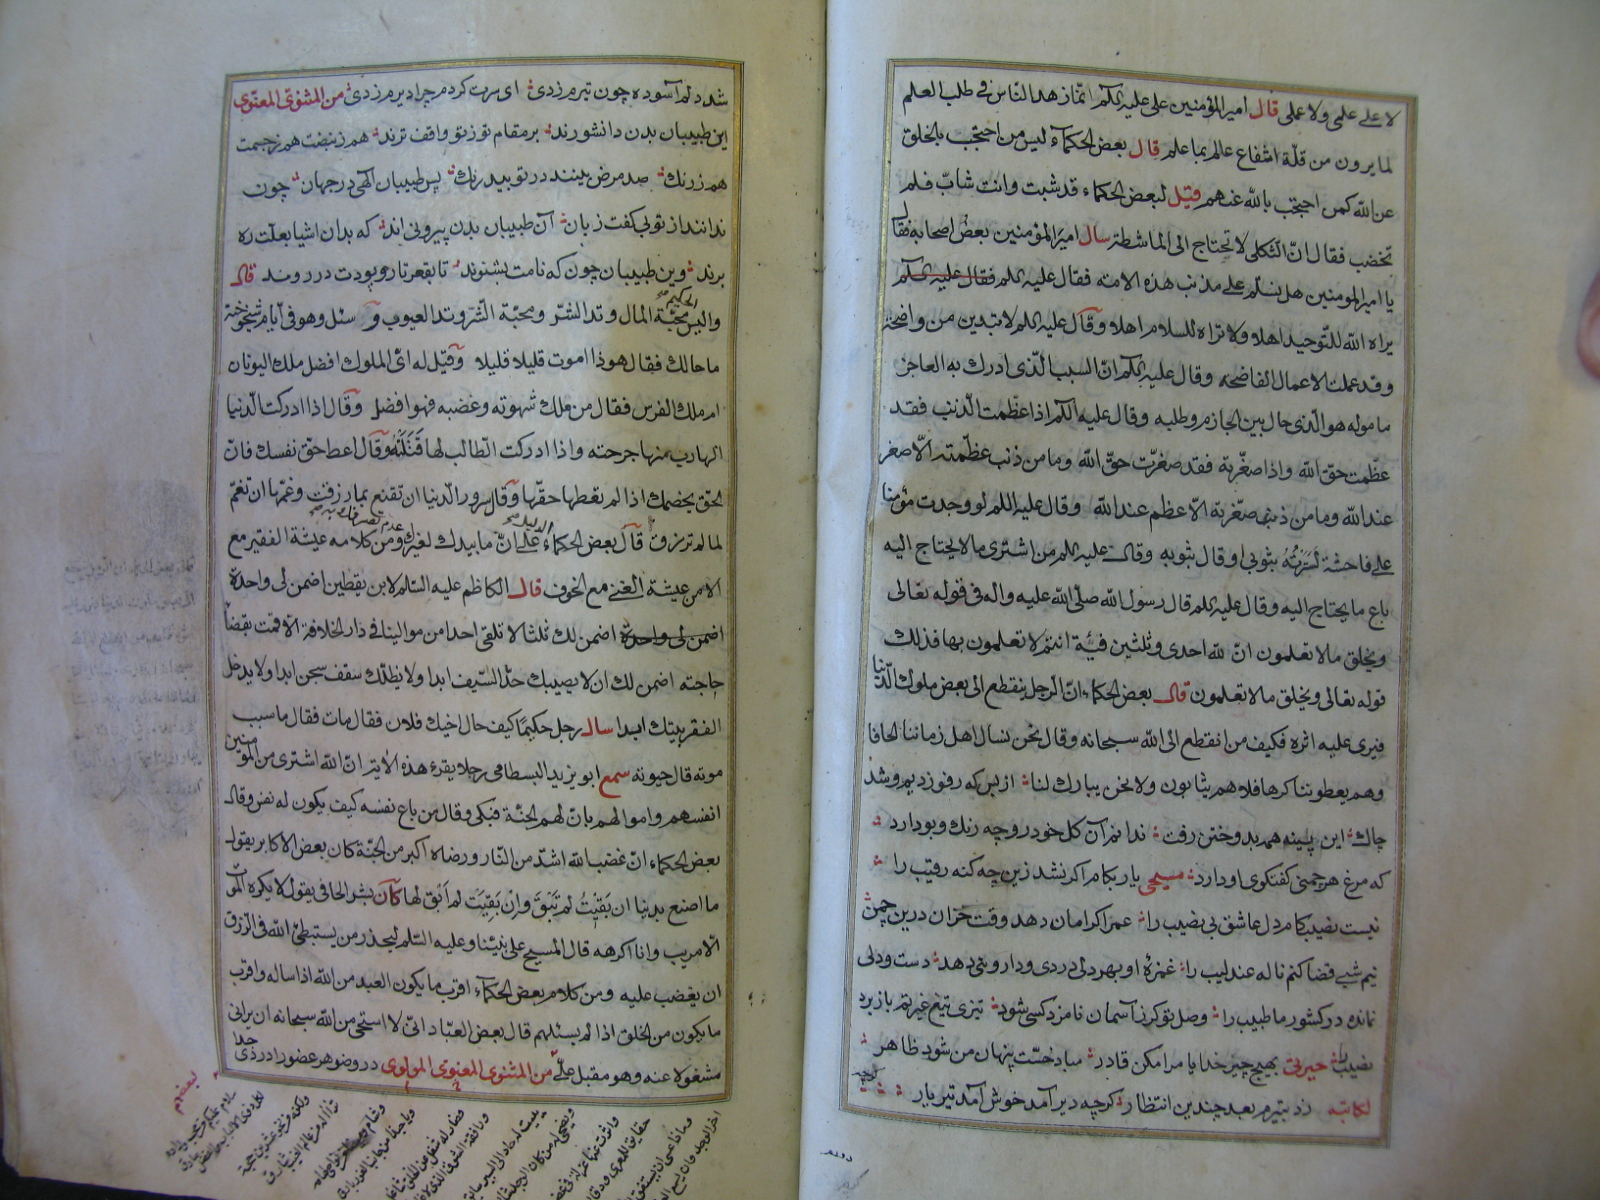 لا على علمى ولا عملى قال امير المؤمنين على عليه السلم انما زهد الناس فى طلب العلم
لما يرون من قلّة انتفاع عالم بما علم قال بعض الحكماء ليس من احتجب بالخلق
عن الله كمن احتجب بالله عنهم قيل لبعض الحكماء قد شبت وانت شابّ فلم لا
تخضب فقال انّ الثكلى لا تحتاج الى الماشطة سال امير المؤمنين بعض اصحابه فقال
يا امير المؤمنين هل نسلّم على مذنب هذه الامة فقال عليه السلم فقال عليه السلم
يراه الله للتّوحيد اهلا ولا تراه للسلام اهلا وقال عليه السلم لا تبدين من واضحة
وقد عملت الاعمال الفاضحة وقال عليه السلم انّ السبب الّذى ادرك به العاجز
ماموله هو الّذى حال بين الحازم وطلبه وقال عليه السلم اذا عظّمت الذنب فقد
عظّمت حقّ الله واذا صغّرته فقد صغّرت حقّ الله وما من ذنب عظّمته الّا صغر
عند الله وما من ذنب صغّرته الّا عظم عند الله وقال عليه السلم لو وجدت مؤمنا
على فاحشة لسترته بثوبى او قال بثوبه وقال عليه السلم من اشترى ما لا يحتاج اليه
باع ما يحتاج اليه وقال عليه السلم قال رسول الله صلّى الله عليه واله فى قوله تعالى
ويخلق ما لا تعلمون انّ لله احدى وثلثين فئة انتم لا تعلمون بها فذلك
قوله تعالى ويخلق ما لا تعلمون قال بعض الحكماء انّ الرجل ينقطع الى بعض ملوك الدّنيا
فيرى عليه اثره فكيف من انقطع الى الله سبحانه وقال نحن نسال اهل زماننا الحافا
وهم يعطوننا كرها فلا هم يثابون ولا نحن يبارك لنا از بس كه رفو زديم و شد
چاك اين پينه همه بدوختن رفت ندانم آن كل خود رو چه رنك و بو دارد
كه مرغ هر چمنى كفتكوى او دارد مسيحى يار بكام اكر نشد زين چه كنه رقيب را
نيست نصيب كام دل عاشق بى نصيب را عمر اكر امان دهد وقت خزان درين چمن
نيم شبى قضا كنم ناله عندليب را غمزهٔ او بهر دلى دردى و داروئى دهد دست و دلى
نمانده در كشور ما طبيب را وصل تو كر ز آسمان نامزد كسى شود تيزى تيغ غيرتم باز برد
نصيب را حيرتى بهيچ چيز خدايا مرا مكن قادر مباد خسّت پنهان من شود ظاهر
لكاتبه زد بتيرم بعد چندين انتظار كرچه دير آمد خوش آمد تير يار
شد دلم آسوده چون تيرم زدى اى سرت كردم چرا ديرم زدى من المثنوى المعنوى
اين طبيبان بدن دانشورند بر مقام تو ز تو واقف ترند هم ز نبضت هم ز چشمت
هم ز رنك صد مرض بينند در تو بيدرنك پس طبيبان الهى در جهان چون
ندانند از تو بى كفت زبان آن طبيبان بدن بيرونى اند كه بدان اشيا بعلّت ره
برند وين طبيبان چون كه نامت بشنوند تا بقعر تار و پودت در روند قال
الحكيم
واليس محبّة المال وتد الشرّ ومحبّة الشرّ وتد العيوب و سئل وهو فى ايام شيخوخته
ما حالك فقال هوذا اموت قليلا قليلا وقيل له اىّ الملوك افضل ملك اليونان
ام ملك الفرس فقال من ملك شهوته وغضبه فهو افضل وقال اذا ادركت الدّنيا
الهارب منها جرحته واذا ادركت الطّالب لها قتلته وقال اعط حقّ نفسك فانّ
الحقّ يخصمك اذا لم تعطها حقّها وقال سرور الدّنيا ان تقنع بما رزقت وغمّها ان تغتمّ
لما لم ترزق قال بعض الحكماء على انّ ما بيدك لغيرك ومن كلامه عيشة الفقير مع
الامن عيشة الغنى مع الخوف قال الكاظم عليه السّلم لابن يقطين اضمن لى واحدة
اضمن لى واحدة اضمن لك ثلثا لا تلقى احدا من موالينا فى دار الخلافة الا قمت بقضاء
حاجته اضمن لك ان لا يصيبك حدّ السّيف ابدا ولا يظلّك سقف سجن ابدا ولا يدخل
الفقر بيتك ابدا سال رجل حكيمًا كيف حال اخيك فلان فقال مات فقال ما سبب
موته قال حيوته سمع ابو يزيد البسطامى رجلا يقرء هذه الاية انّ الله اشترى من المؤمنين
انفسهم واموالهم بانّ لهم الجنّة فبكى وقال من باع نفسه كيف يكون له نفس وقال
بعض الحكماء انّ غضب الله اشدّ من النّار ورضاه اكبر من الجنّة كان بعض الاكابر يقول
ما اصنع بدنيا ان بقيت لم تبق وان بقيت لم ابق لها كان بشر الحافى يقول لا يكره الموت
الّا مريب وانا اكرهه قال المسيح على نبيّنا وعليه السّلم ليحذر من يستبطئ الله فى الرزق
ان يغضب عليه ومن كلام بعض الحكماء اقرب ما يكون العبد من الله اذا ساله واقرب
ما يكون من الخلق اذا لم يسئلهم قال بعض العبّاد انّى لا استحى من الله سبحانه ان يرانى
مشغولا عنه وهو مقبل علىّ من المثنوى المعنوى المولوى در وضو هر عضو را وردى جدا